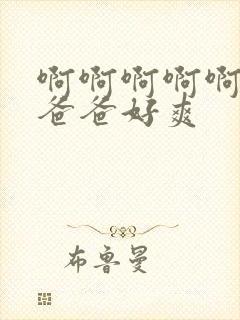 啊啊啊啊啊
爸爸好爽
布鲁曼